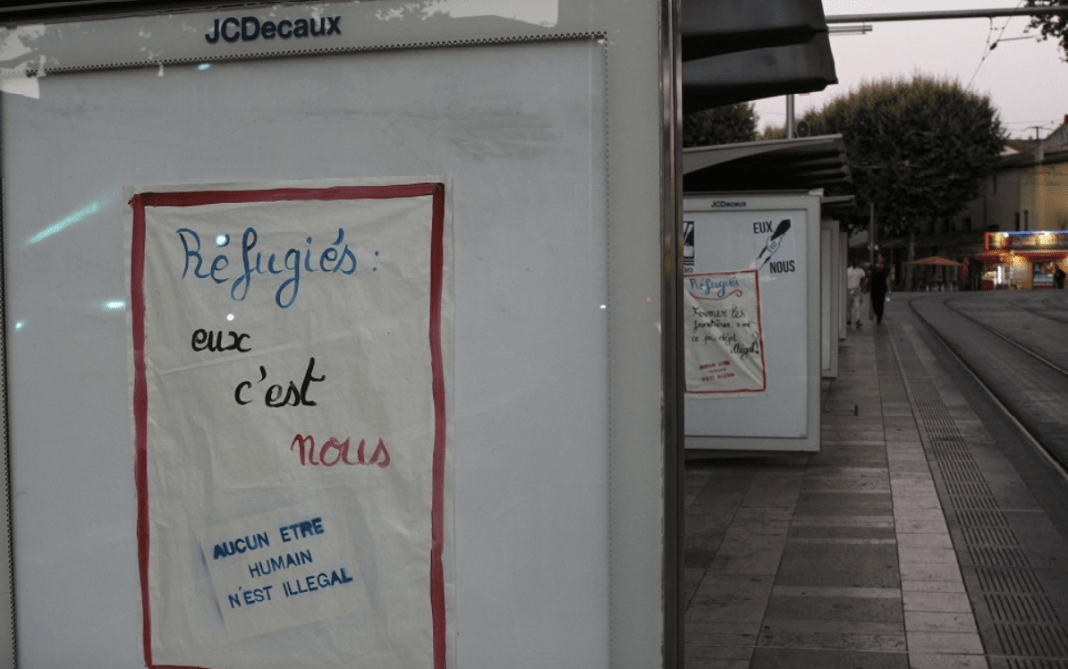 JCDecaux
Réfugiés :
eux
c'est
nous
AUCUN ETRE
HUMAIN
N'EST ILLEGAL
JCDecaux
EUX
NOUS
Réfugiés
Fermer les
frontières